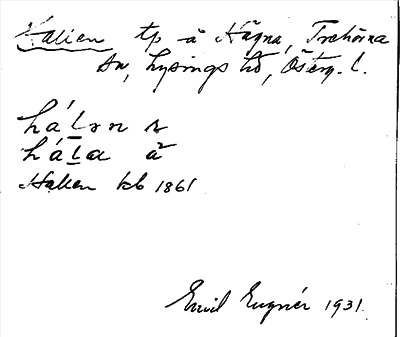 Halien tp å Hägna, Trehörna
sn, Lysings hd, Österg. l.
háḻən n
háḻa å
Hallen kb 1861
Emil Eugnér 1931.